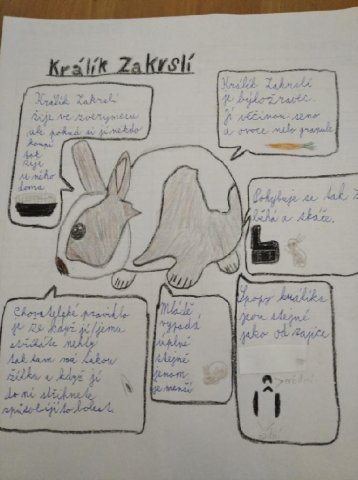 Králík Zakrslí
Králík Zakrslí
žije ve zverymexu
ale pokud si ji někdo
koupí
tak
žije
u něho
doma
Králík Zakrslí
je býložravec.
jí většinou seno
a ovoce nebo granule
Pohybuje se tak ž
běhá a skáče.
Chovatelské pravidlo
je že když jí/jemu
stříháte nehty
tak tam má takou
žílku a když jí
do ní střihnete
způsobíjí to bolest
Mládě
vypadá
úplně
stejně
jenom
je menší
Stopy králíka
jsou stejné
jako od zajíce